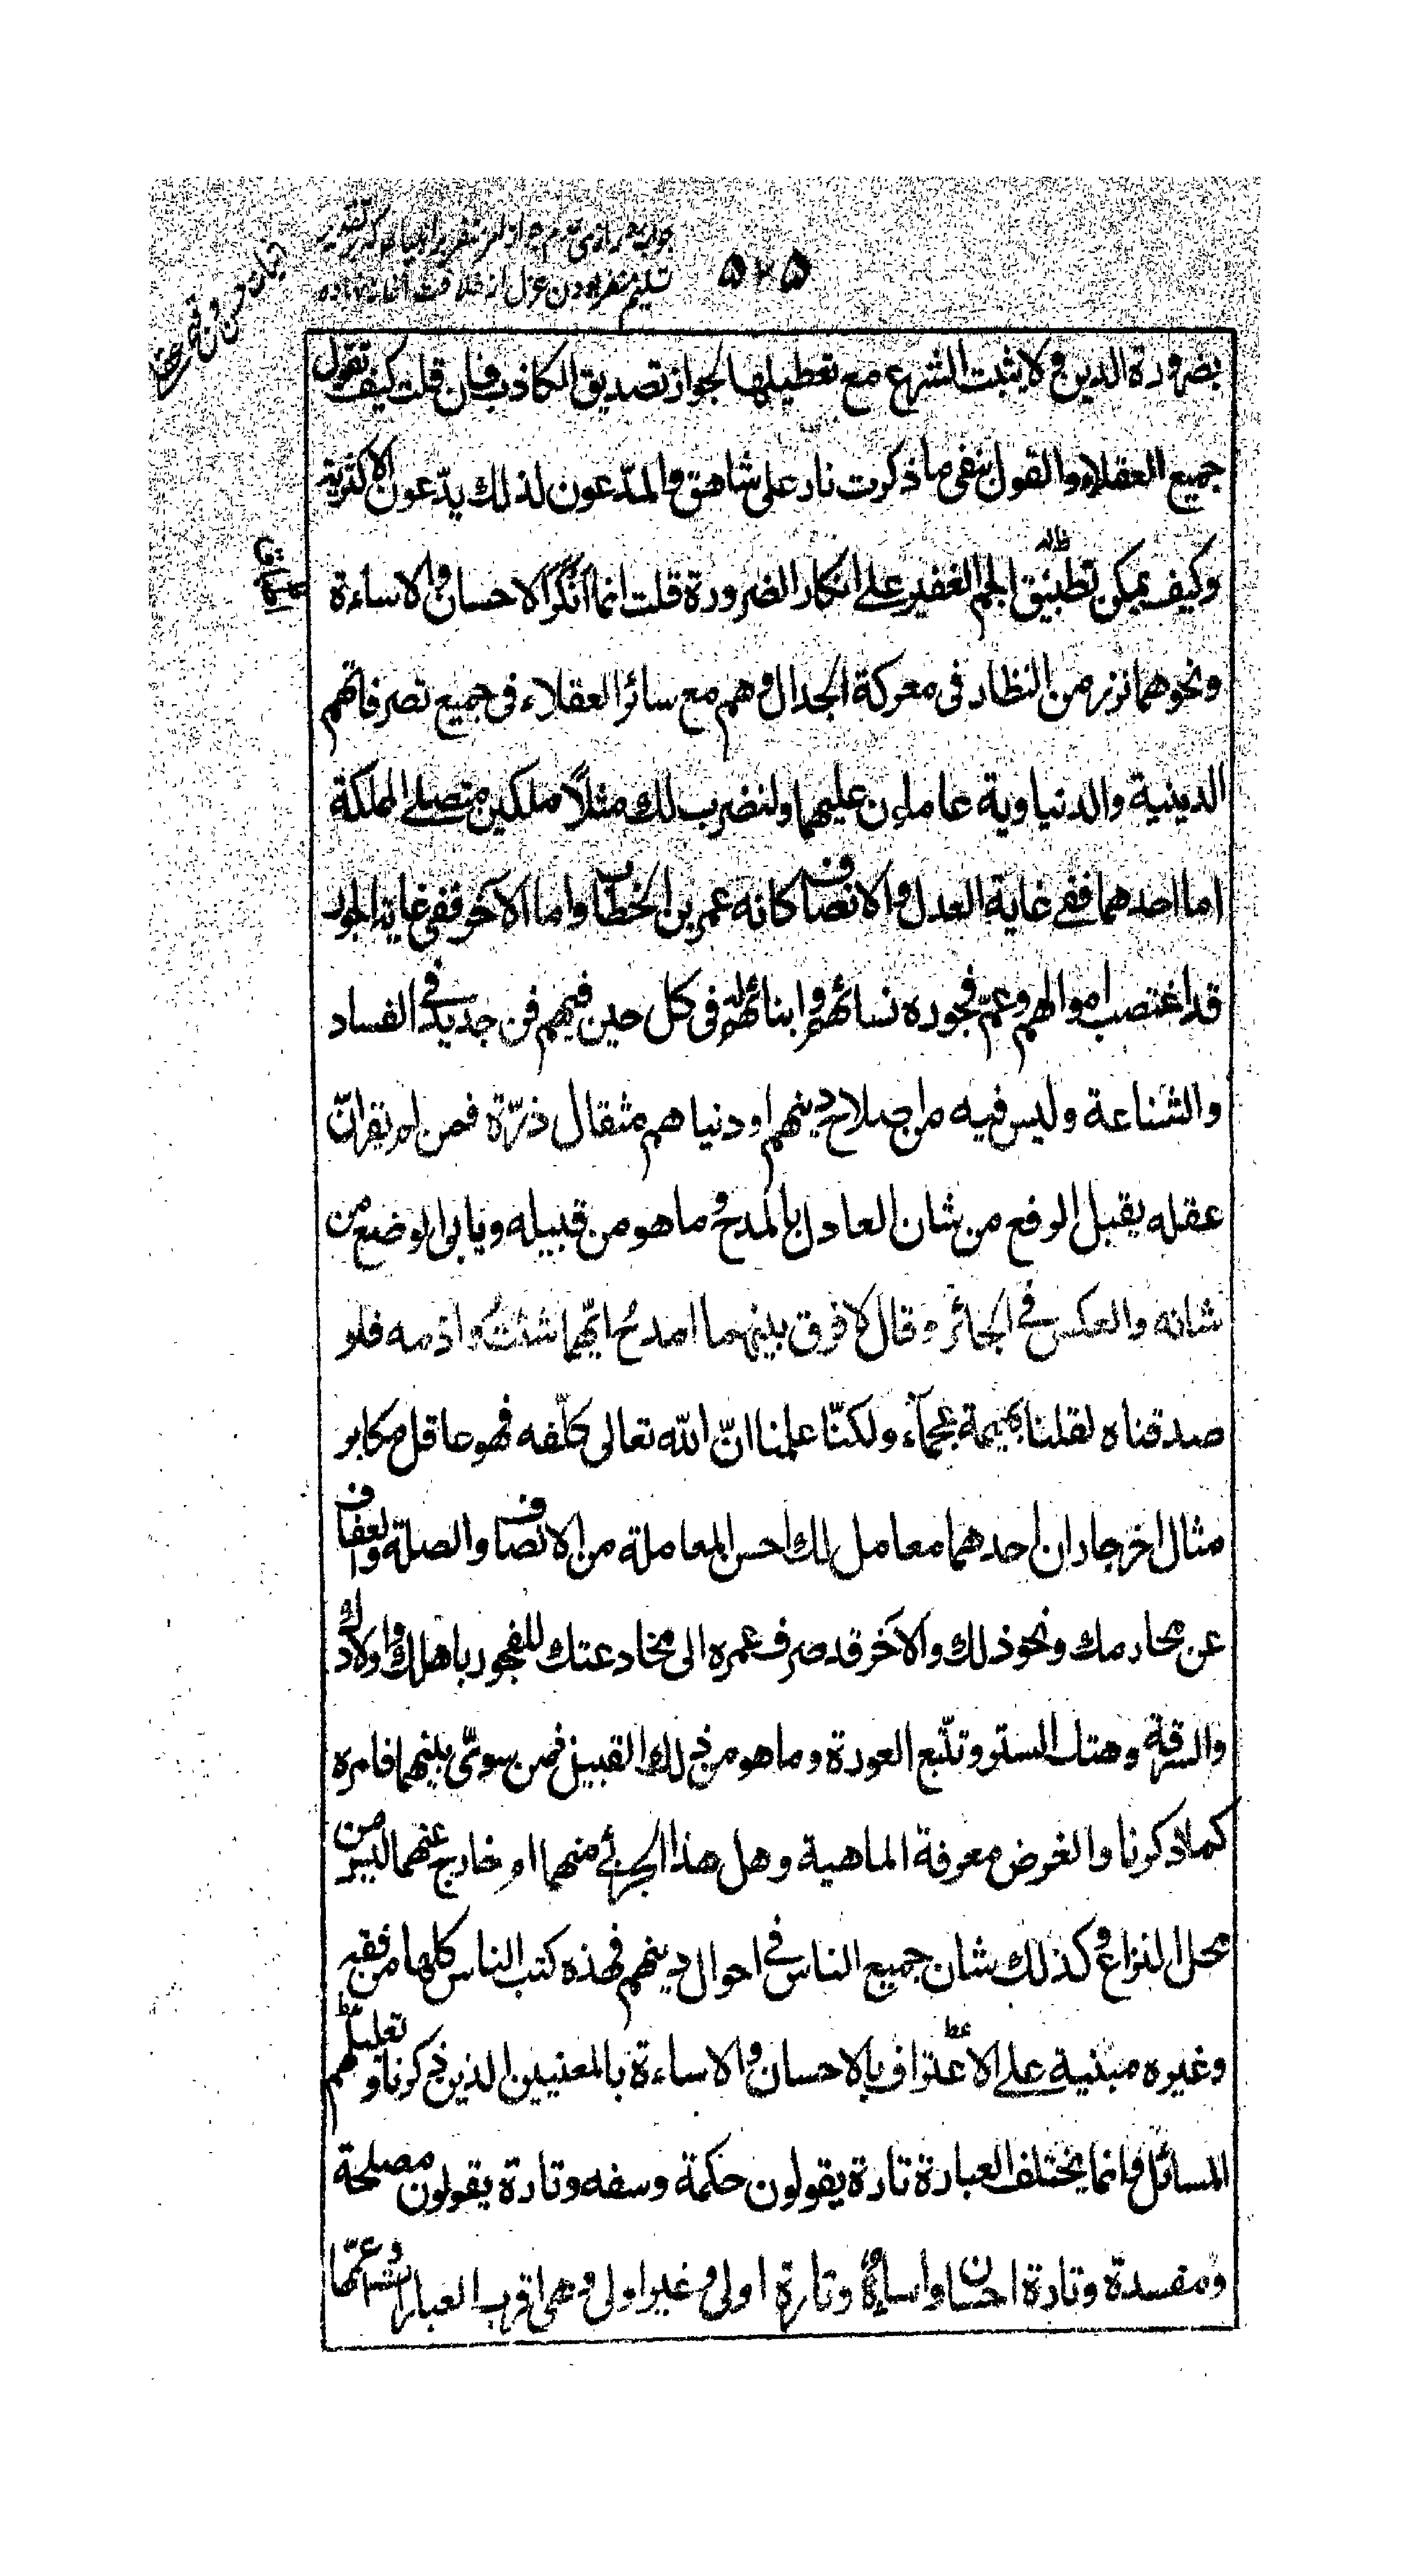 ۵۲۵
بضرورة الدين ولا يثبت الشرع مع تعطيلها لجواز تصديق الكاذب فان قلت كيف تقول
جميع العقلاء والقول بنفى ما ذكرت نار على شاهق والمدّعون لذلك يدّعون الاكثرية
وكيف يمكن تطبيق الجم الغفير على انكار الضرورة قلت انما انكر الاحسان والاساءة
ونحوهما نزر من النظار فى معركة الجدال وهم مع سائر العقلاء فى جميع تصرفاتهم
الدينية والدنياوية عاملون عليهما ولنضرب لك مثلاً ملكين متصلى المملكة
اما احدهما ففى غاية العدل والانصاف كانه عمر بن الخطاب واما الآخر ففى غاية الجور
قد اغتصب اموالهم وعمّ فجوره نسائهم وابنائهم له فى كل حين فيهم فن جديد فى الفساد
والشناعة وليس فيه من صلاح دينهم او دنياهم مثقال ذرّة فمن لم يقر انّ
عقله يقبل الرفع من شان العادل بالمدح وما هو من قبيله ويابى الوضع من
شانه والعكس فى الجائر وقال لا فرق بينهما امدحُ ايّهما شئتُ واذمه فلو
صدقناه لقلنا بهيمة عجمآء ولكنّا علمنا انّ الله تعالى كلّفه فهو عاقل مكابر
مثال اخر جاران احدهما معامل لك احسن المعاملة من الانصاف والصلة والعفاف
عن محارمك ونحو ذلك والآخر قد صرف عمره الى مخادعتك للفجور باهلك واولادك
والسرقة وهتك الستر وتتبّع العورة وما هو من ذلك القبيل فمن سوىّ بينهما فامره
كما ذكرنا والغرض معرفة الماهية وهل هذا الجزئى منهما او خارج عنهما ليس من
محل النزاع وكذلك شان جميع الناس فى احوال دينهم فهذه كتب الناس كلها من فقه
وغيره مبنية على الاعتراف بالاحسان والاساءة بالمعنيين الذين ذكرنا وتعليلهم
المسائل وانما يختلف العبارة تارة يقولون حكمة وسفه وتارة يقولون مصلحة
ومفسدة وتارة احسان واساءة وتارة اولى وغير اولى وهى اقرب العبارات واعمّها